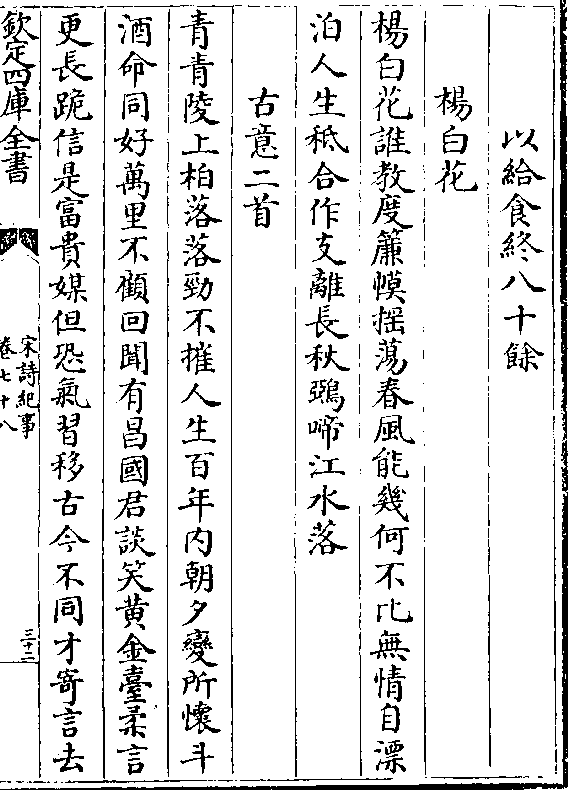 以給食終八十餘
楊白花
楊白花誰教度簾幙揺蕩春風能幾何不比無情自漂
泊人生秪合作支離長秋鵶啼江水落
古意二首
青青陵上柏落落勁不摧人生百年内朝夕變所懷斗
酒命同好萬里不顧回聞有昌國君談笑黄金臺柔言
更長跪信是富貴媒但恐氣習移古今不同才寄言去
欽定四庫全書
宋詩紀事
卷七十八
三十二